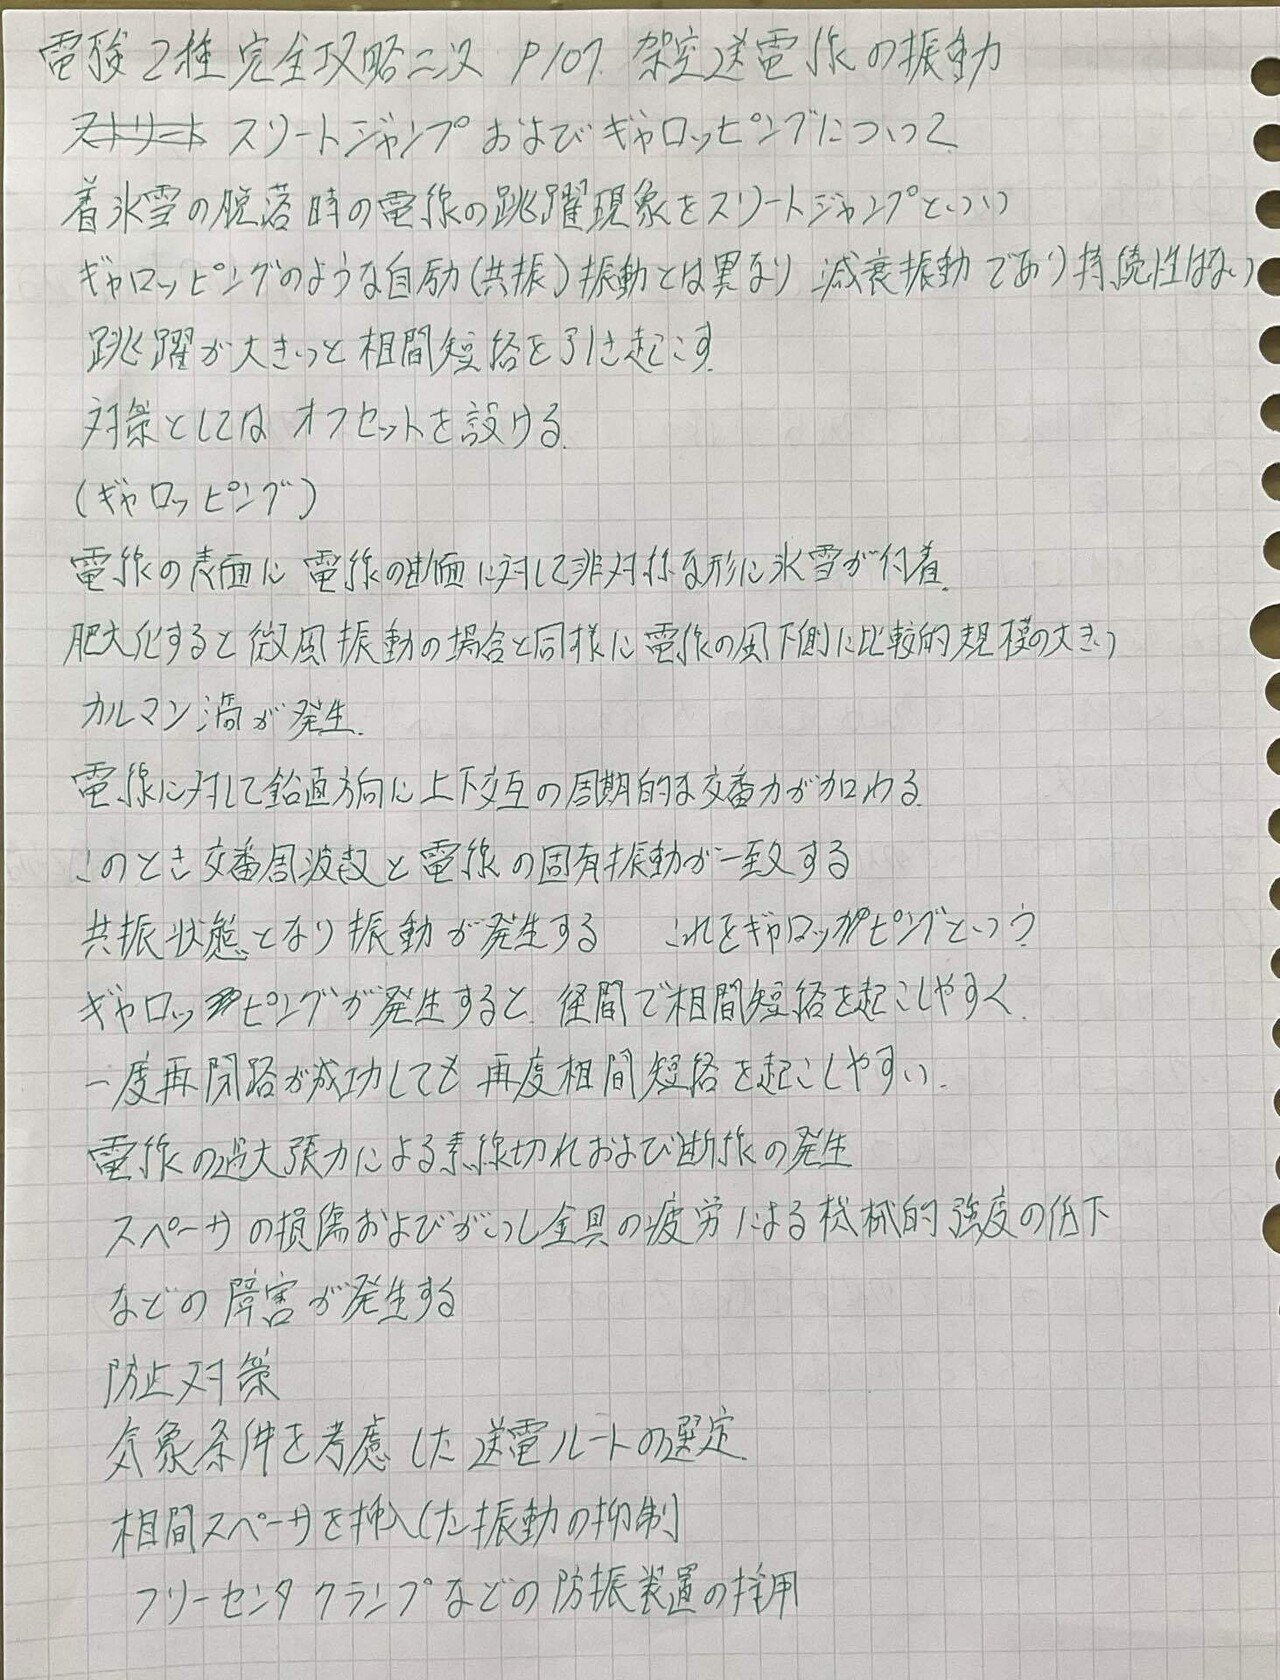 電験2種完全攻略二次 P107. 架空送電線の振動
スリートジャンプおよびギャロッピングについて
着氷雪の脱落時の電線の跳躍現象をスリートジャンプという
ギャロッピングのような自励(共振)振動とは異なり 減衰振動であり持続性はない
跳躍が大きいと相間短絡を引き起こす.
対策としては オフセットを設ける.
(ギャロッピング)
電線の表面に 電線の断面に対して非対称な形に氷雪が付着.
肥大化すると微風振動の場合と同様に電線の風下側に比較的規模の大きい
カルマン渦が発生.
電線に対して鉛直方向に上下交互の周期的な交番力が加わる.
このとき交番周波数と電線の固有振動が一致する
共振状態となり振動が発生する これをギャロッピングという
ギャロッピングが発生すると. 径間で相間短絡を起こしやすく.
一度再閉路が成功しても 再度相間短絡を起こしやすい.
電線の過大張力による素線切れおよび断線の発生
スペーサの損傷およびがいし金具の疲労による機械的強度の低下
などの障害が発生する
防止対策
気象条件を考慮した送電ルートの選定.
相間スペーサを挿入した振動の抑制
フリーセンタクランプなどの防振装置の採用